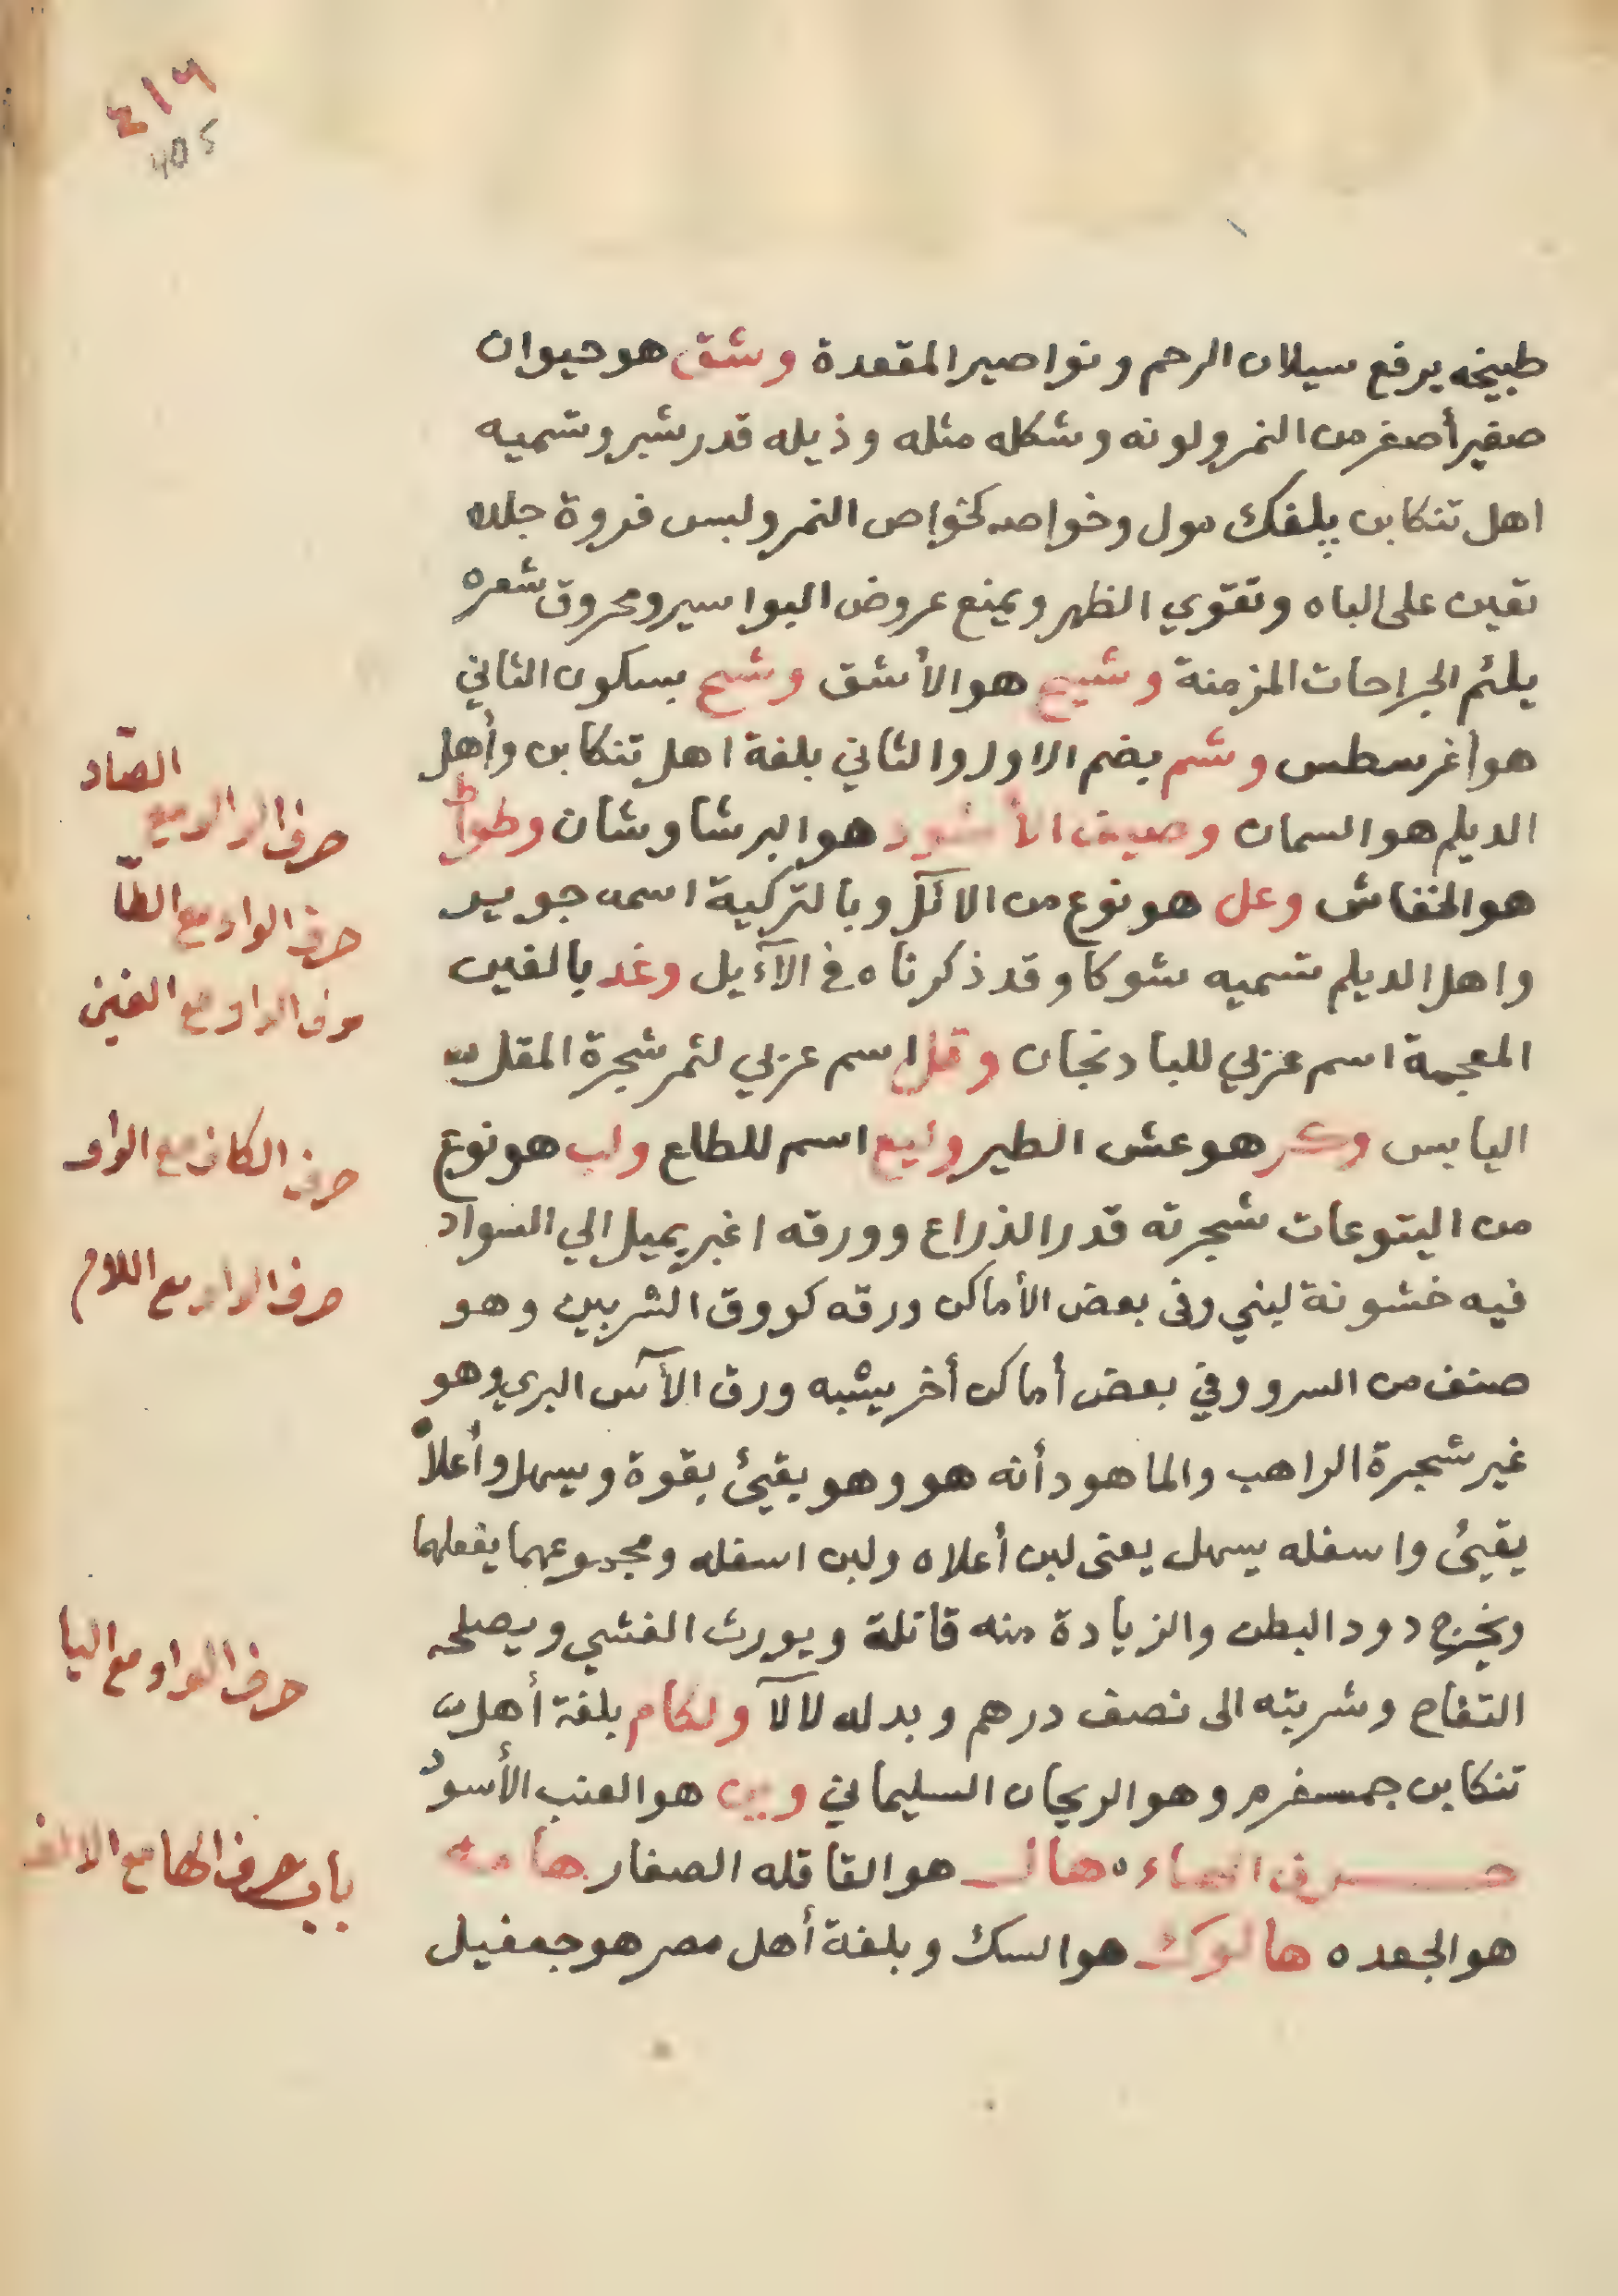 ٤١٦
405
طبيخه يرفع سيلان الرحم ونواصير المقعدة وشق هو حيوان
صغير أصغر من النمر ولونه وشكله مثله وذيله قدر شبر وتسميه
اهل تنكابن پلفك مول وخواصه كخواص النمر ولبس فروة جلده
تعين على الباه وتقوي الظهر ويمنع عروض البواسير ومحروق شعره
يلئم الجراحات المزمنة وشيح هو الأشق وشح بسكون الثاني
هو اغرسطس وشم بضم الاول والثاني بلغة اهل تنكابن وأهل
الديلم هو السمان وصيف الأسود هو البرشاوشان وطواط
هو الخفاش وعل هو نوع من الائل وبالتركية اسمه جوير
واهل الديلم تسميه شوكا وقد ذكرناه في الآءيل وغد بالغين
المعجمة اسم عربي للبادنجان وقل اسم عربي لثمر شجرة المقل
اليابس وكر هو عش الطير وليع اسم للطلع ولب هو نوع
من اليتوعات شجرته قدر الذراع وورقه اغبر يميل الي السواد
فيه خشونة لبني وفى بعض الأماكن ورقه كووق الشربين وهو
صنف من السرو وفي بعض أماكن أخر يشبه ورق الآس البري وهو
غير شجرة الراهب والماهودأنه هو وهو يقيئ بقوة ويسهل وأعلاه
يقيئ واسفله يسهل يعنى لبن أعلاه ولبن اسفله ومجموعهما يفعلهما
ويخرج دود البطن والزيادة منه قاتلة ويورث الغشي ويصلحه
التفاح وشربته الى نصف درهم وبدله لالآ ولكام بلغة أهل
تنكابن جمسفرم وهو الريحان السليماني وين هو العنب الأسود
حرف الهاء هال هو القاقله الصغار هامه
هو الجعده هالوك هو السك وبلغة أهل مصر هو جعفيل
الصّاد
حرف الواو مع
حرف الواو مع الطّا
حرف الواو مع الغين
حرف الكاف مع الواو
حرف الواو مع اللام
حرف الواو مع اليا
باب حرف الها مع الالف